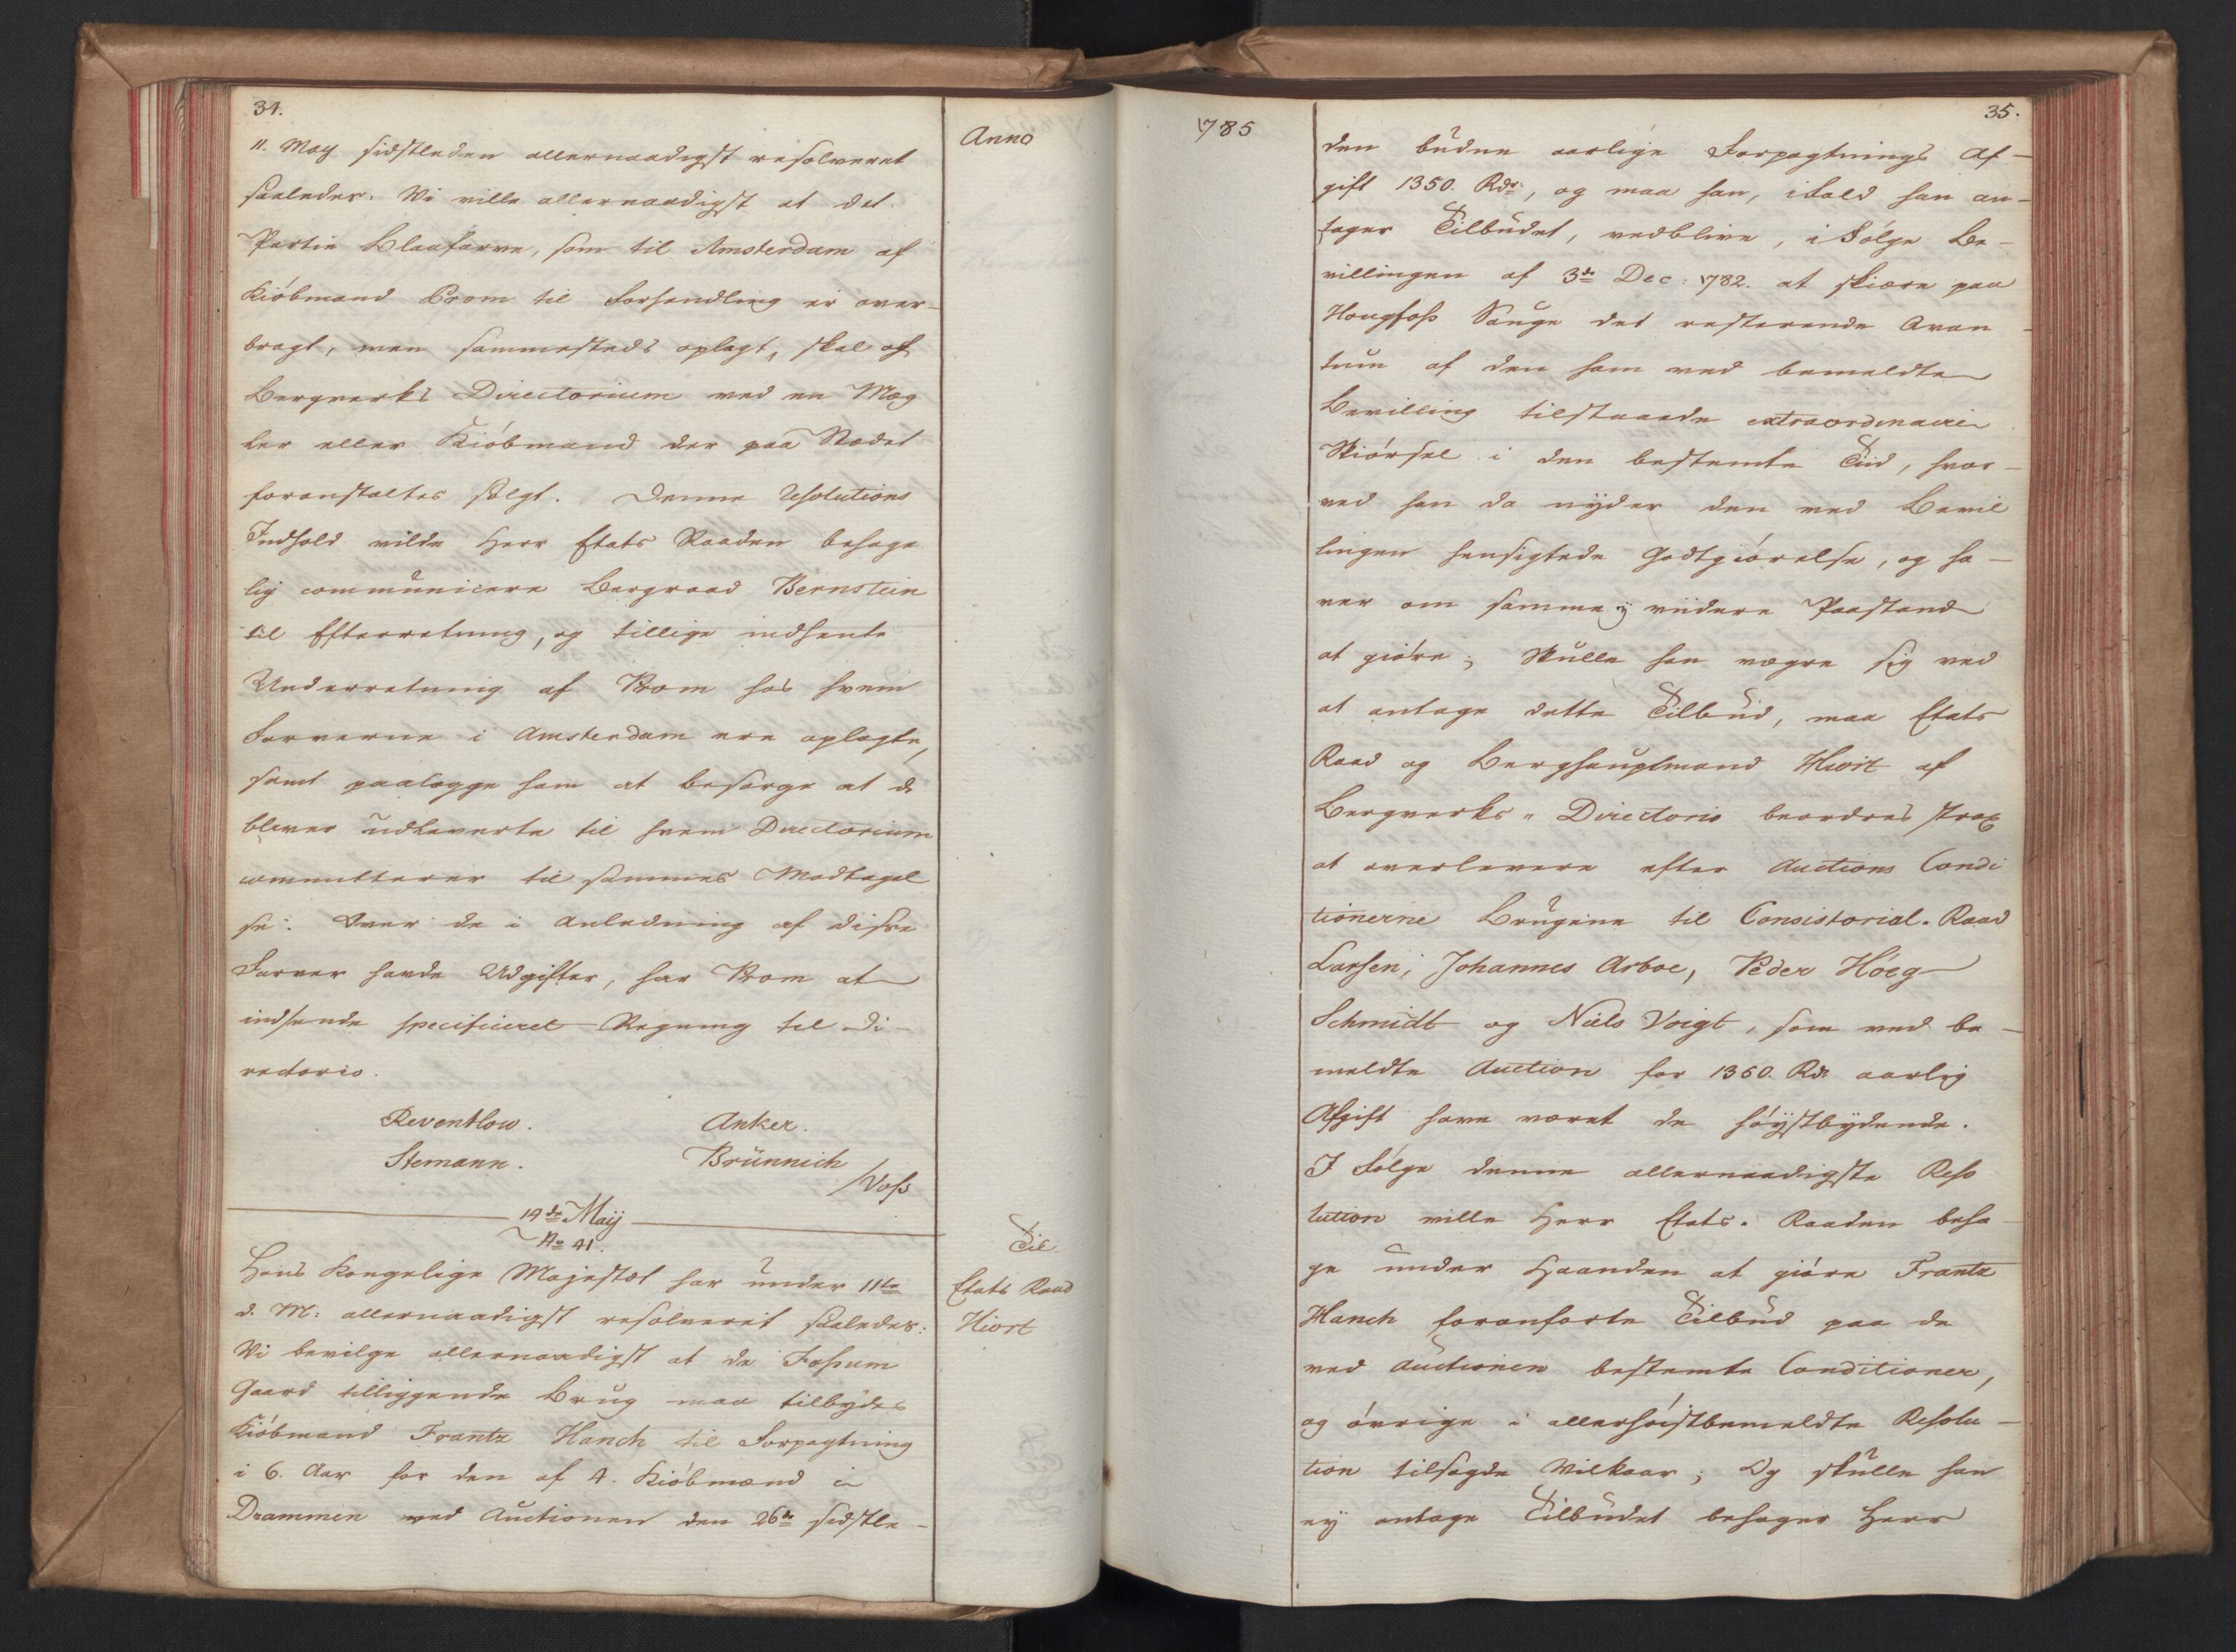 34.
Anno
11. May sidstleden allernaadigst resolveret
saaledes: Vi ville allernaadigst at det
Partie Blaafarve, som til Amsterdam af
Kiöbmand Prom til Forhandling er over-
bragt, men sammesteds oplagt, skal af
Bergverks Directorium ved en Mæg
ler eller Kiöbmand der paa Stedet
foranstaltes solgt. Denne Resolutions
Indhold vilde Herr Etats Raaden behage
lig communicere Bergraad Bernstein
til Efterretning, og tillige indhente
Underretning af Prom hos hvem
Farverne i Amsterdam ere oplagte,
samt paalegge ham at besörge at de
bliver udleverte til hvem Directorium
committerer til sammes Modtagel
se. Over de i Anledning af disse
Farver havde Udgifter, har Prom at
indsende specificeret Regning til Di-
rectorio.
Reventlow. Anker.
Stemann. Brünnich
/Voss
14de Maij
No 41.
Til
Etats Raad
Hiort
Hans Kongelige Majestæt har under 11te
d. M: allernaadigst resolveret saaledes:
Vi bevilge allernaadigst at de Fossum
Gaard tilliggende Brug maa tilbydes
Kiöbmand Frantz Hanch til Forpagtning
i 6. Aar for den af 4. Kiöbmænd i
Drammen ved Auctionen den 26de sidstle-
1785
35.
den budne aarlige Forpagtnings Af-
gift 1350. Rdr:, og maa han, ifald han an-
tager Tilbudet, vedblive, i Fölge Be-
villingen af 3de Dec: 1782. at skiære paa
Hougfoss Sauge det resterende Qvan-
tum af den ham ved bemeldte
Bevilling tilstaaede extraordinaire
Skiörsel i den bestemte Tiid, hvor-
ved han da nyder den ved Bevil
lingen hensigtede Godtgiörelse, og ha-
ver om samme ey viidere Paastand
at giöre; Skulle han vægre sig ved
at antage dette Tilbud, maa Etats
Raad og Berghauptmand Hiort af
Bergverks-Directorio beordres strax
at overlevere efter Auctions Condi
tionerne Brugene til Consistorial-Raad
Larsen, Johannes Arboe, Peder Höeg
Schmidt og Niels Voigt, som ved be-
meldte Auction for 1360. Rdr aarlig
Afgift have været de höystbydende.
I Fölge denne allernaadigste Reso
lution ville Herr Etats-Raaden beha-
ge under Haanden at giöre Frantz
Hanch foranforte Tilbud paa de
ved Auctionen bestemte Conditioner,
og övrige i allerhöistbemeldte Resolu-
tion tilsagde Vilkaar; Og skulle han
ey antage Tilbudet behager Herr